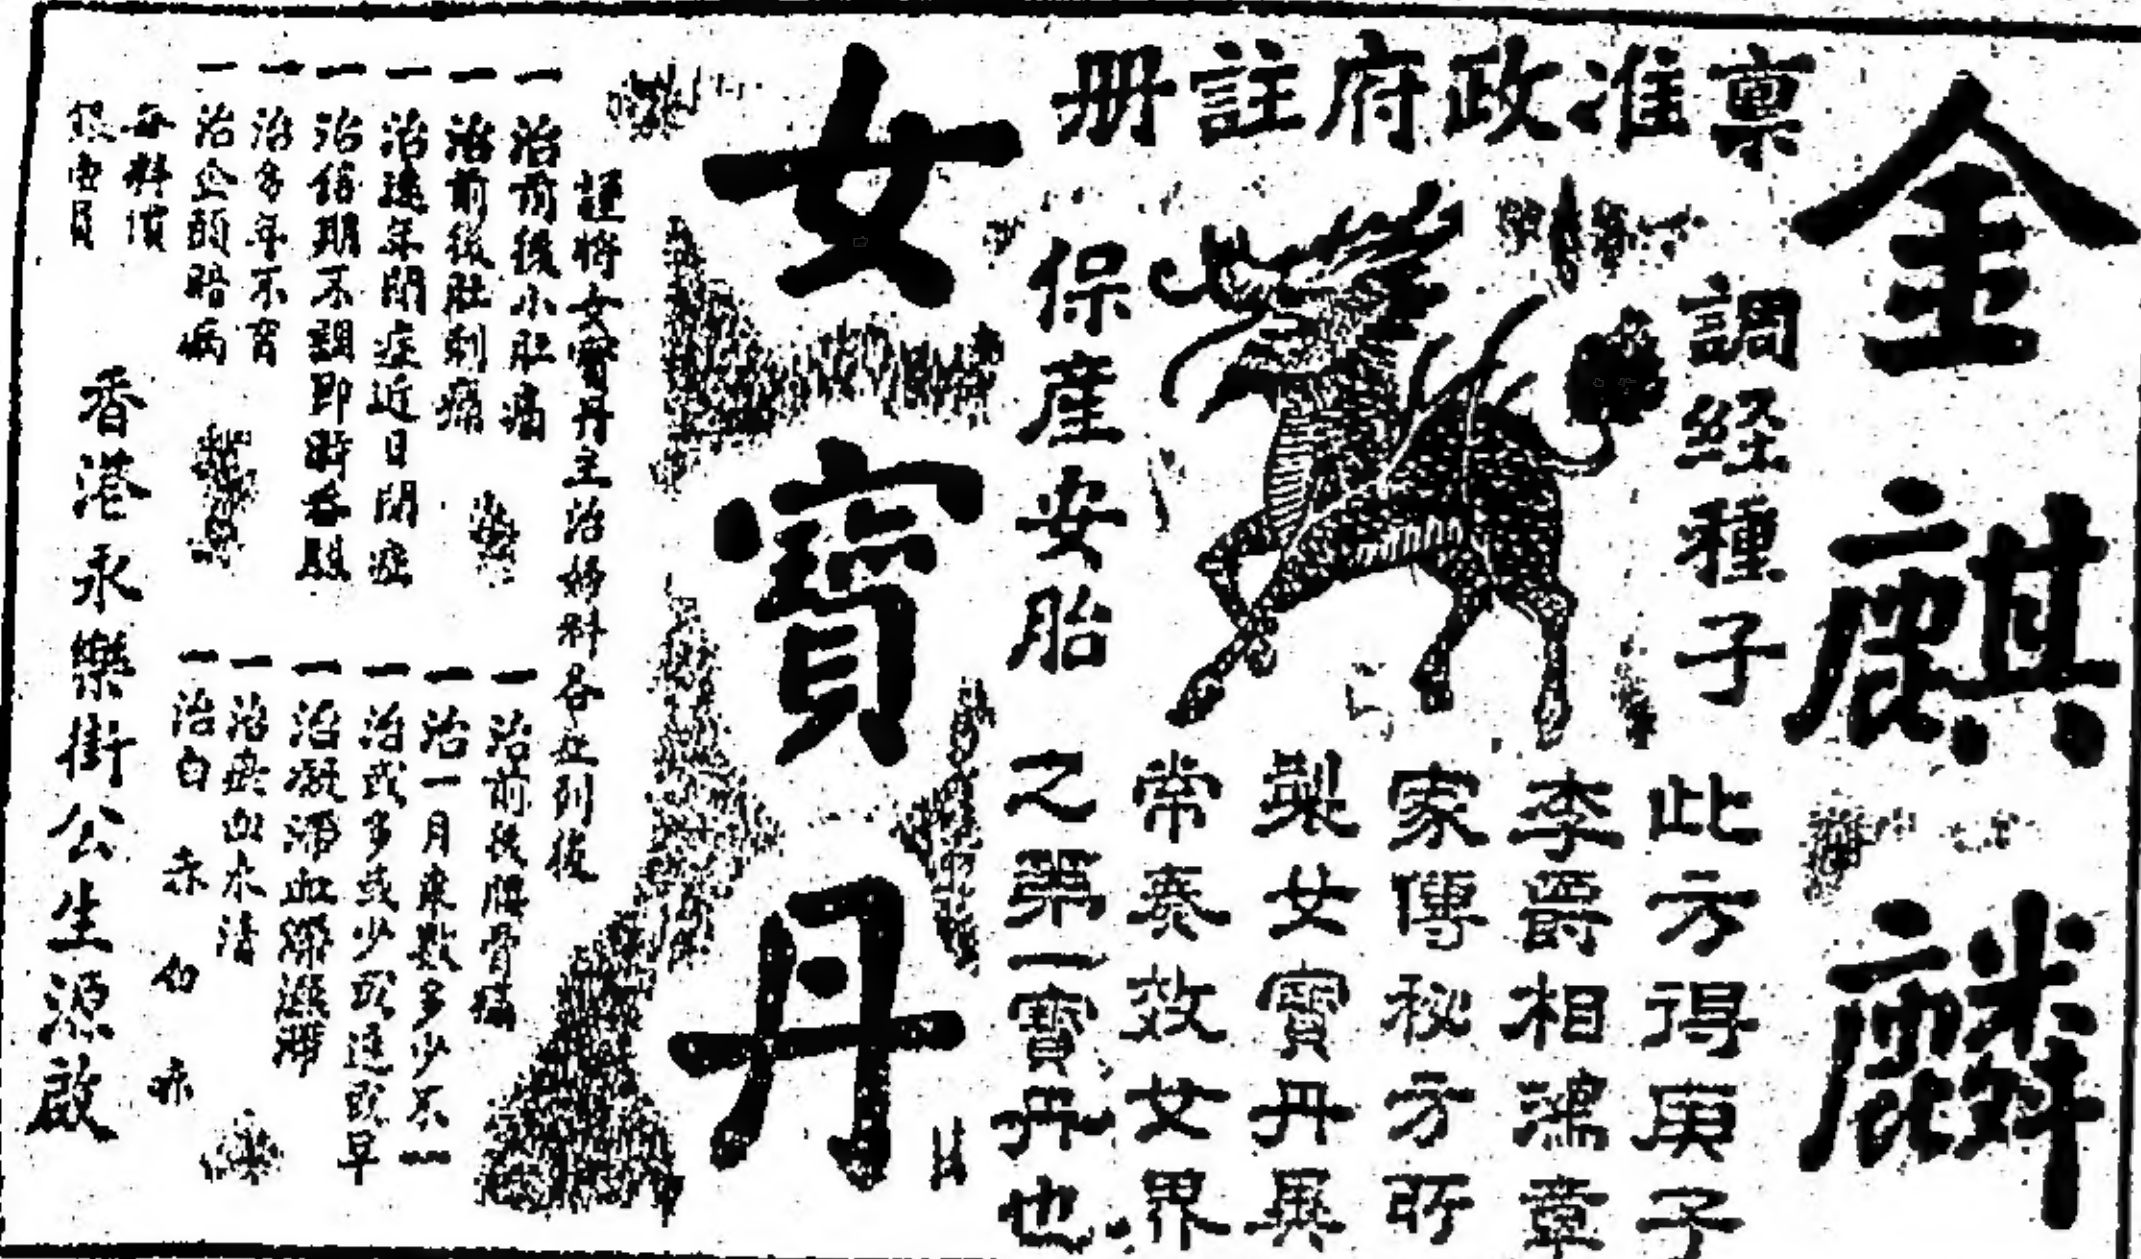 金麒麟
稟准政府註册
調経種子
保産安胎
此方得庚子
李爵相鴻章
家傳秘方所
製女寶丹異
常奏效女界
之第一寶丹也
女寶丹
謹將女寶丹主治婦科各症列後
一治前後小肚痛
一治前後肚刺痛
一治遠年閉症近日閉症
一治信期不調即時
一治多年不育
一治企頭暗病
一治前後腰骨痛
一治一月來數多少不一
一治或多或少或遲或早
一治凝滯血
一治瘀血水清
一治白 赤 白 赤
每料價
銀 員
香港永樂街公生源啟